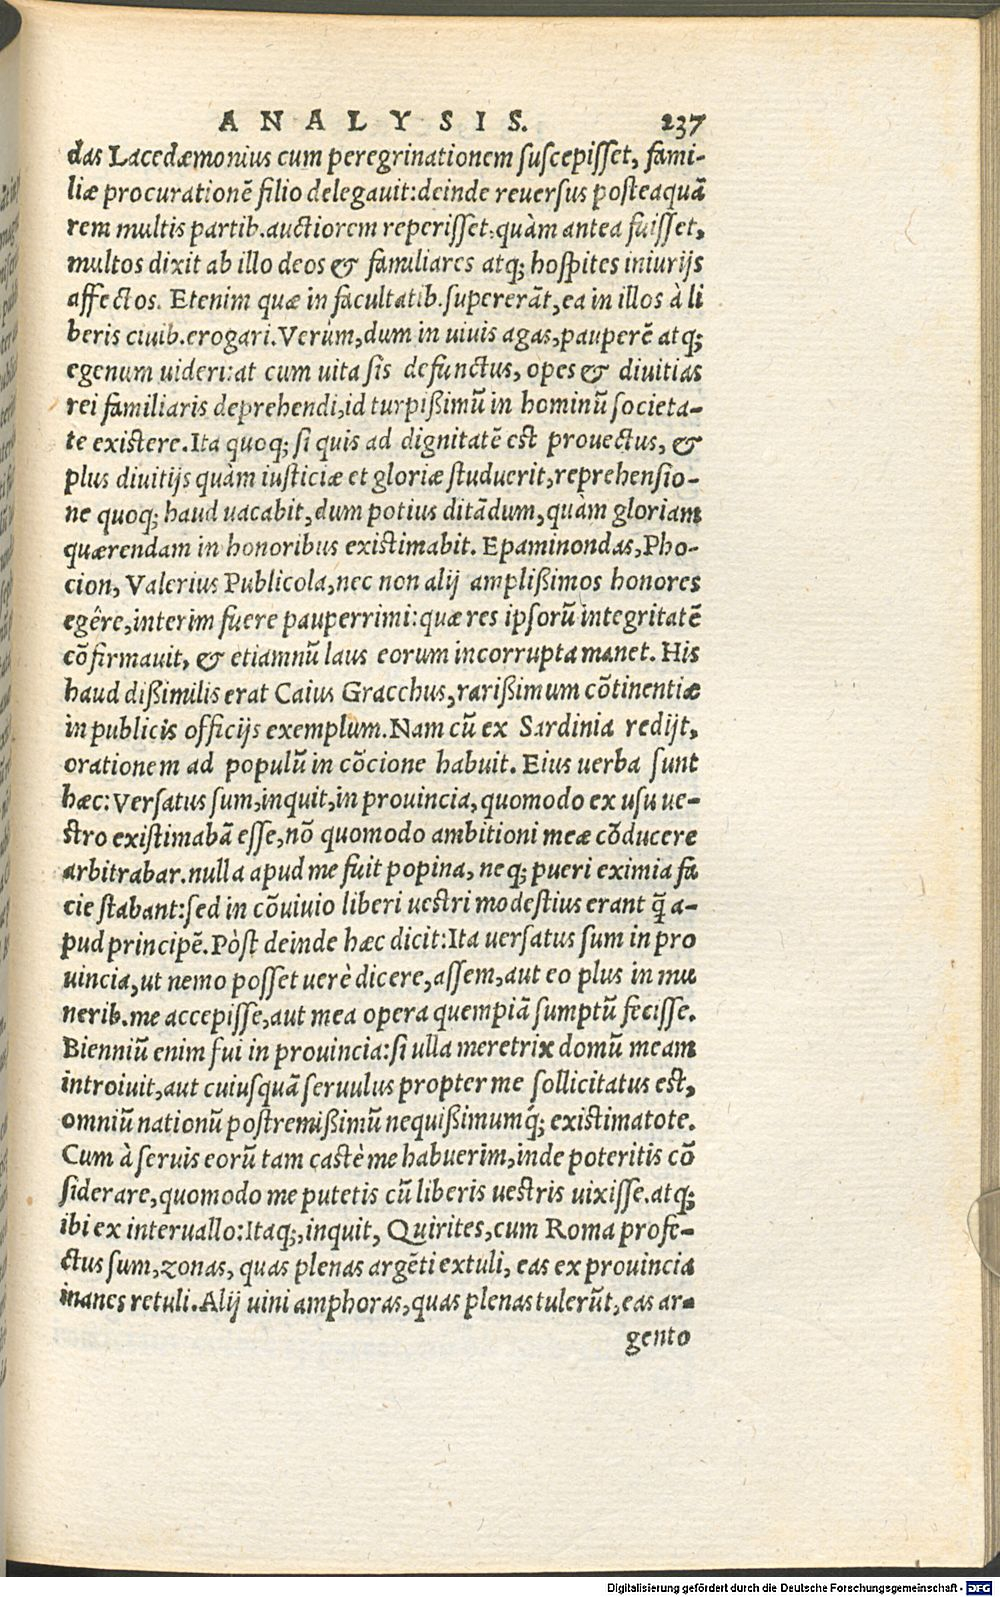 ANALYSIS. 237
das Lacedæmonius cum peregrinationem suscepisset, fami-
liæ procurationẽ filio delegauit:deinde reuersus posteaquã
rem multis partib.auctiorem reperisset,quàm antea fuisset,
multos dixit ab illo deos & familiares atq; hospites iniurijs
affectos. Etenim quæ in facultatib.supererãt,ea in illos à li
beris ciuib.erogari.Verùm,dum in uiuis agas,pauperẽ atq;
egenum uideri:at cum uita sis defunctus, opes & diuitias
rei familiaris deprehendi,id turpißimũ in hominũ societa-
te existere.Ita quoq; si quis ad dignitatẽ est prouectus, &
plus diuitijs quàm iusticiæ et gloriæ studuerit,reprehensio-
ne quoq; haud uacabit,dum potius ditãdum,quàm gloriam
quærendam in honoribus existimabit. Epaminondas,Pho-
cion, Valerius Publicola,nec non alij amplißimos honores
egêre,interim fuere pauperrimi:quæ res ipsorũ integritatẽ
cõfirmauit, & etiamnũ laus eorum incorrupta manet. His
haud dißimilis erat Caius Gracchus,rarißimum cõtinentiæ
in publicis officijs exemplum.Nam cũ ex Sardinia redijt,
orationem ad populũ in cõcione habuit. Eius uerba sunt
hæc:Versatus sum,inquit,in prouincia,quomodo ex usu ue-
stro existimabã esse,nõ quomodo ambitioni meæ cõducere
arbitrabar.nulla apud me fuit popina, neq; pueri eximia fa
cie stabant:sed in cõuiuio liberi uestri modestius erant q̃ a-
pud principẽ.Pòst deinde hæc dicit:Ita uersatus sum in pro
uincia,ut nemo posset uerè dicere,assem,aut eo plus in mu
nerib.me accepisse,aut mea opera quempiã sumptũ fecisse.
Bienniũ enim fui in prouincia:si ulla meretrix domũ meam
introiuit,aut cuiusquã seruulus propter me sollicitatus est,
omniũ nationũ postremißimũ nequißimumq́; existimatote.
Cum à seruis eorũ tam castè me habuerim,inde poteritis cõ
siderare,quomodo me putetis cũ liberis uestris uixisse.atq;
ibi ex interuallo:Itaq;,inquit, Quirites,cum Roma profe-
ctus sum,zonas, quas plenas argẽti extuli, eas ex prouincia
inanes retuli.Alij uini amphoras,quas plenas tulerũt,eas ar-
gento
Digitalisierung gefördert durch die Deutsche Forschungsgemeinschaft - DFG